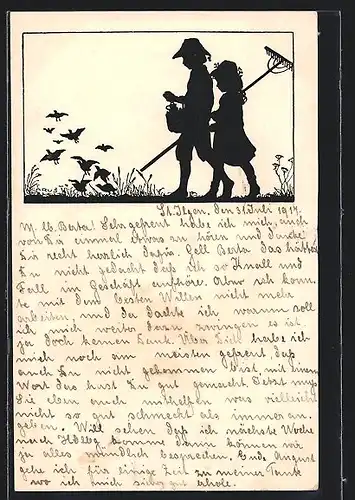 St. Ilgen, den 31. Juli 1917.
M. lb. Berta! Sehr gefreut habe ich mich, auch
von Dir einmal etwas zu hören und danke
Dir recht herzlich dafür. Gell Berta das hättest
Du nicht gedacht daß ich so Knall und
Fall im Geschäft aufhöre. Aber ich konn
te mit dem besten Willen nicht mehr
arbeiten, und da dachte ich, warum soll
ich mich weiter dazu zwingen es ist
ja doch keinen Dank. Über Dich habe ich
mich noch am meisten gefreut, daß
auch Du nicht gekommen bist, mit einem
Wort das hast Du gut gemacht. Jetzt muß
Sie eben auch mithelfen was vielleicht
nicht so gut schmeckt als immer an-
geben. Will sehen daß ich nächste Woche
nach Hdlbg. komme dann können wir
ja alles mündlich besprechen. Ende August
gehe ich für einige Zeit zu meiner Tante
wo ich mich gut erhole.